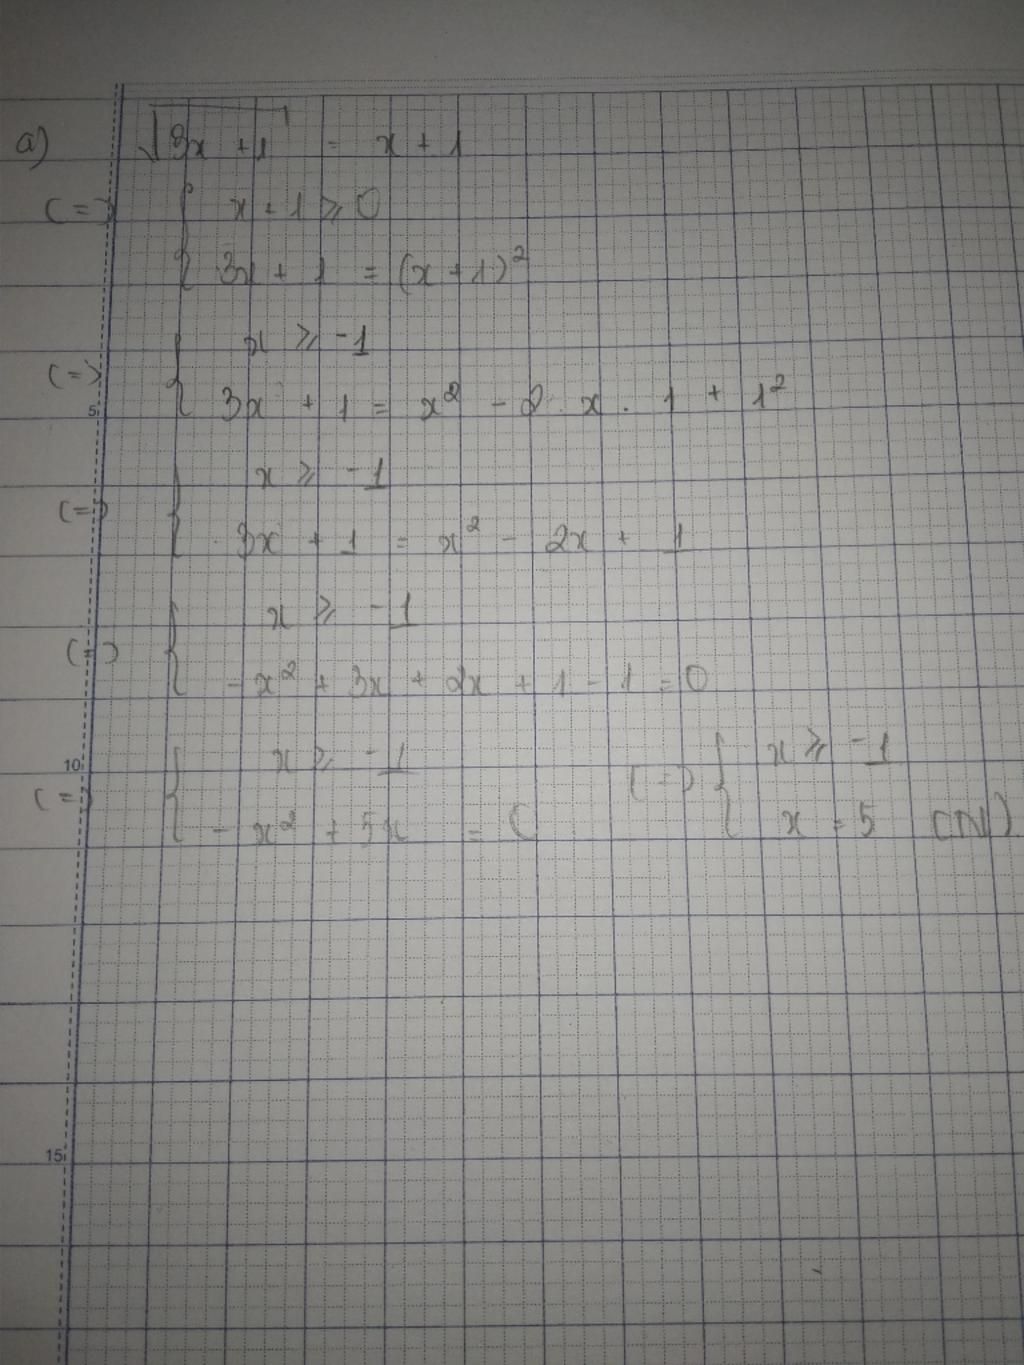 a) √3x + 1 = x + 1
(=) { x + 1 ≥ 0
3x + 1 = (x + 1)²
(=) { x ≥ -1
5 3x + 1 = x² - 2 . x . 1 + 1²
(=) { x ≥ -1
3x + 1 = x² - 2x + 1
(=) { x ≥ -1
- x² + 3x + 2x + 1 - 1 = 0
10 (=) { x ≥ -1 (=) { x ≥ -1
- x² + 5x = 0 x = 5 (N)
15